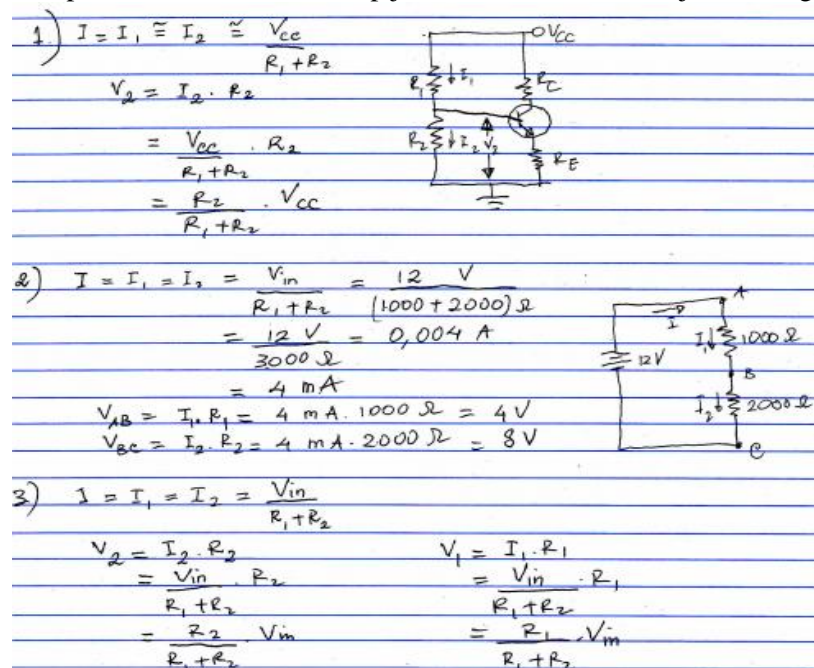 1) I = I₁ ≅ I₂ ≅ Vcc / R₁+R₂
V₂ = I₂ . R₂
= Vcc / R₁+R₂ . R₂
= R₂ / R₁+R₂ . Vcc
Vcc
R₁ I₁ RC
R₂ I₂ V₂ RE
2) I = I₁ = I₂ = Vin / R₁+R₂ = 12 V / (1000+2000) Ω
= 12 V / 3000 Ω = 0,004 A
= 4 mA
VAB = I₁. R₁ = 4 mA. 1000 Ω = 4 V
VBC = I₂. R₂ = 4 mA. 2000 Ω = 8 V
A
I
I₁ 1000 Ω
12V B
I₂ 2000 Ω
C
3) I = I₁ = I₂ = Vin / R₁+R₂
V₂ = I₂. R₂ V₁ = I₁. R₁
= Vin / R₁+R₂ . R₂ = Vin / R₁+R₂ . R₁
= R₂ / R₁+R₂ . Vin = R₁ / R₁+R₂ . Vin